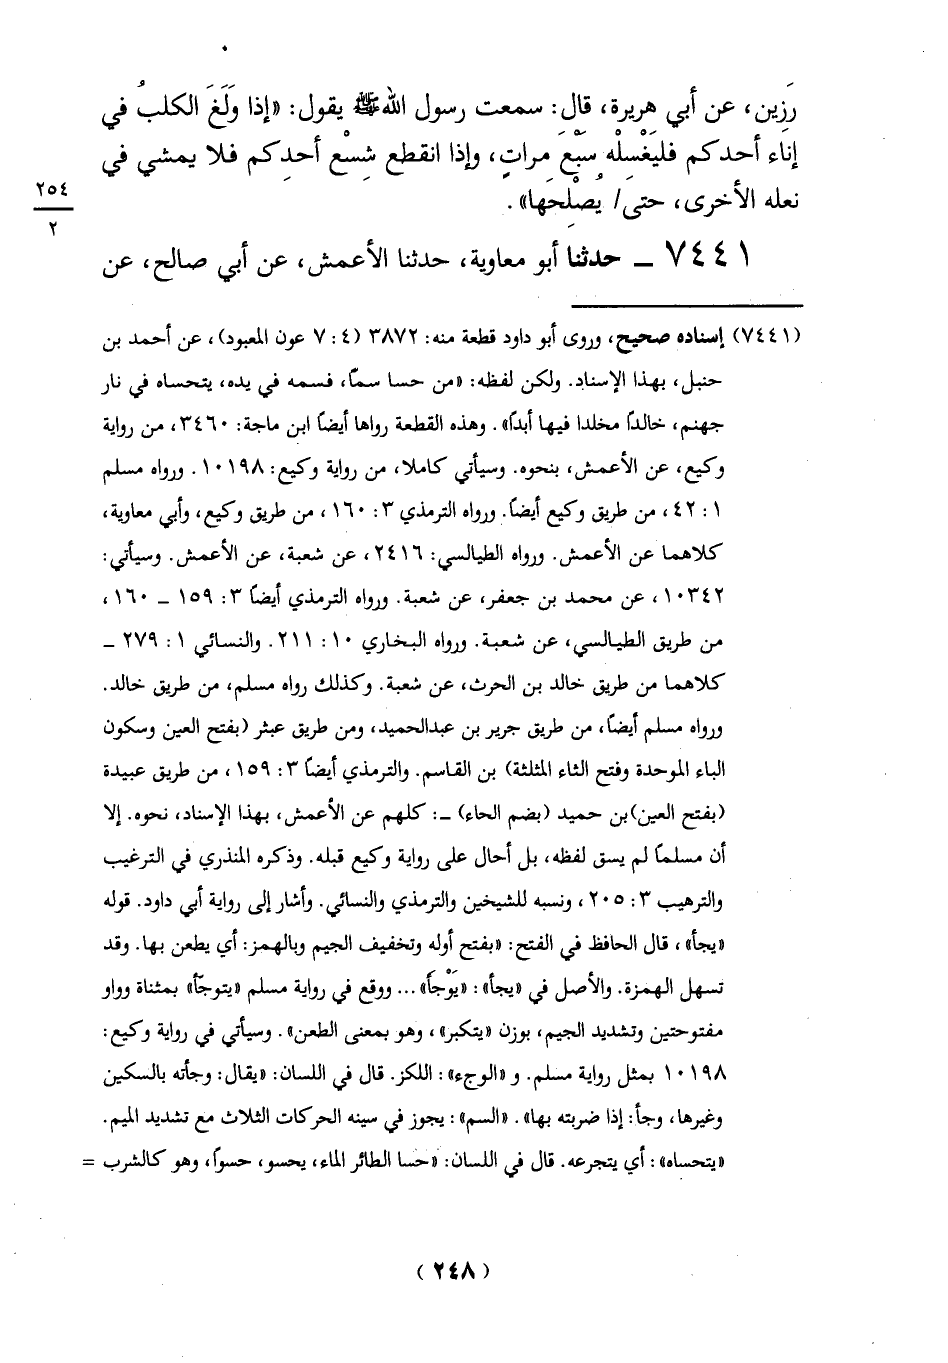 رَزِين، عن أبي هريرة، قال: سمعت رسول الله ﷺ يقول: «إذا وَلَغَ الكلبُ في
إناء أحدكم فليَغْسِلْه سَبْعَ مراتٍ، وإذا انقطع شِسْع أحدِكم فلا يمشي في
نعله الأخرى، حتى/ يُصْلِحَها».
٢٥٤
٢
٧٤٤١ ـ حدثنا أبو معاوية، حدثنا الأعمش، عن أبي صالح، عن
(٧٤٤١) إسناده صحيح، وروى أبو داود قطعة منه: ٣٨٧٢ (٤: ٧ عون المعبود)، عن أحمد بن
حنبل، بهذا الإسناد. ولكن لفظه: «من حسا سمّا، فسمه في يده، يتحساه في نار
جهنم، خالدًا مخلدا فيها أبدًا». وهذه القطعة رواها أيضًا ابن ماجة: ٣٤٦٠، من رواية
وكيع، عن الأعمش، بنحوه. وسيأتي كاملا، من رواية وكيع: ١٠١٩٨. ورواه مسلم
١: ٤٢، من طريق وكيع أيضًا. ورواه الترمذي ٣: ١٦٠، من طريق وكيع، وأبي معاوية،
كلاهما عن الأعمش. ورواه الطيالسي: ٢٤١٦، عن شعبة، عن الأعمش. وسيأتي:
١٠٣٤٢، عن محمد بن جعفر، عن شعبة. ورواه الترمذي أيضًا ٣: ١٥٩ ـ ١٦٠،
من طريق الطيالسي، عن شعبة. ورواه البخاري ١٠: ٢١١. والنسائي ١: ٢٧٩ ـ
كلاهما من طريق خالد بن الحرث، عن شعبة. وكذلك رواه مسلم، من طريق خالد.
ورواه مسلم أيضًا، من طريق جرير بن عبدالحميد، ومن طريق عبثر (بفتح العين وسكون
الباء الموحدة وفتح الثاء المثلثة) بن القاسم. والترمذي أيضًا ٣: ١٥٩، من طريق عبيدة
(بفتح العين)بن حميد (بضم الحاء) ـ: كلهم عن الأعمش، بهذا الإسناد، نحوه. إلا
أن مسلمًا لم يسق لفظه، بل أحال على رواية وكيع قبله. وذكره المنذري في الترغيب
والترهيب ٣: ٢٠٥، ونسبه للشيخين والترمذي والنسائي. وأشار إلى رواية أبي داود. قوله
«يجأ»، قال الحافظ في الفتح: «بفتح أوله وتخفيف الجيم وبالهمز: أي يطعن بها. وقد
تسهل الهمزة. والأصل في «يجأ»: «يَوْجَأ»... ووقع في رواية مسلم «يتوجّأ» بمثناة وواو
مفتوحتين وتشديد الجيم، بوزن «يتكبر»، وهو بمعنى الطعن». وسيأتي في رواية وكيع:
١٠١٩٨ بمثل رواية مسلم. و «الوجء»: اللكز. قال في اللسان: «يقال: وجأته بالسكين
وغيرها، وجأ: إذا ضربته بها». «السم»: يجوز في سينه الحركات الثلاث مع تشديد الميم.
«يتحساه»: أي يتجرعه. قال في اللسان: «حسا الطائر الماء، يحسو، حسوًا، وهو كالشرب =
(٢٤٨)